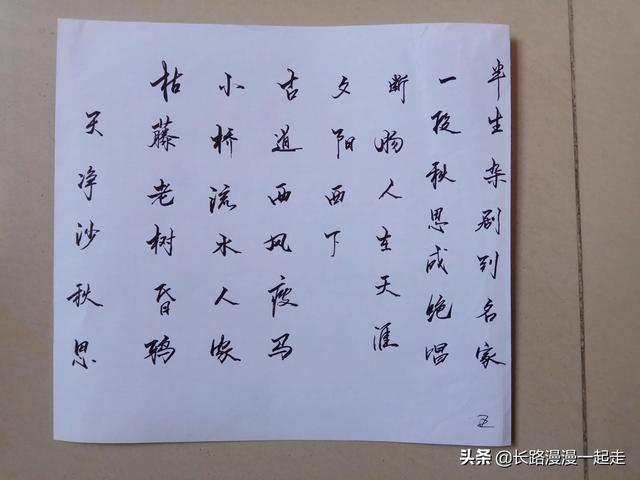 天净沙秋思
枯藤老树昏鸦
小桥流水人家
古道西风瘦马
夕阳西下
断肠人在天涯
一段秋思成绝唱
半生杂剧别名家
头条 @长路漫漫一起走